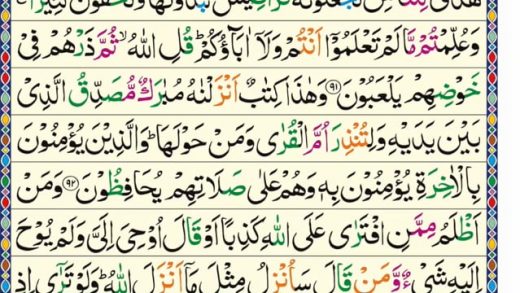 هُدًى لِّلنَّاسِ تَجْعَلُوْنَهٗ قَرَاطِيْسَ تُبْدُوْنَهَا وَتُخْفُوْنَ كَثِيْرًا
وَعُلِّمْتُمْ مَّا لَمْ تَعْلَمُوْٓا اَنْتُمْ وَلَآ اٰبَآؤُكُمْ ؕ قُلِ اللّٰهُ ۙ ثُمَّ ذَرْهُمْ فِيْ
خَوْضِهِمْ يَلْعَبُوْنَ ﴿۹۱﴾ وَهٰذَا كِتٰبٌ اَنْزَلْنٰهُ مُبٰرَكٌ مُّصَدِّقُ الَّذِيْ
بَيْنَ يَدَيْهِ وَلِتُنْذِرَ اُمَّ الْقُرٰى وَمَنْ حَوْلَهَا ؕ وَالَّذِيْنَ يُؤْمِنُوْنَ
بِالْاٰخِرَةِ يُؤْمِنُوْنَ بِهٖ وَهُمْ عَلٰى صَلَاتِهِمْ يُحَافِظُوْنَ ﴿۹۲﴾ وَمَنْ
اَظْلَمُ مِمَّنِ افْتَرٰى عَلَى اللّٰهِ كَذِبًا اَوْ قَالَ اُوْحِيَ اِلَيَّ وَلَمْ يُوْحَ
اِلَيْهِ شَيْءٌ وَّمَنْ قَالَ سَاُنْزِلُ مِثْلَ مَآ اَنْزَلَ اللّٰهُ ؕ وَلَوْ تَرٰٓى اِذِ